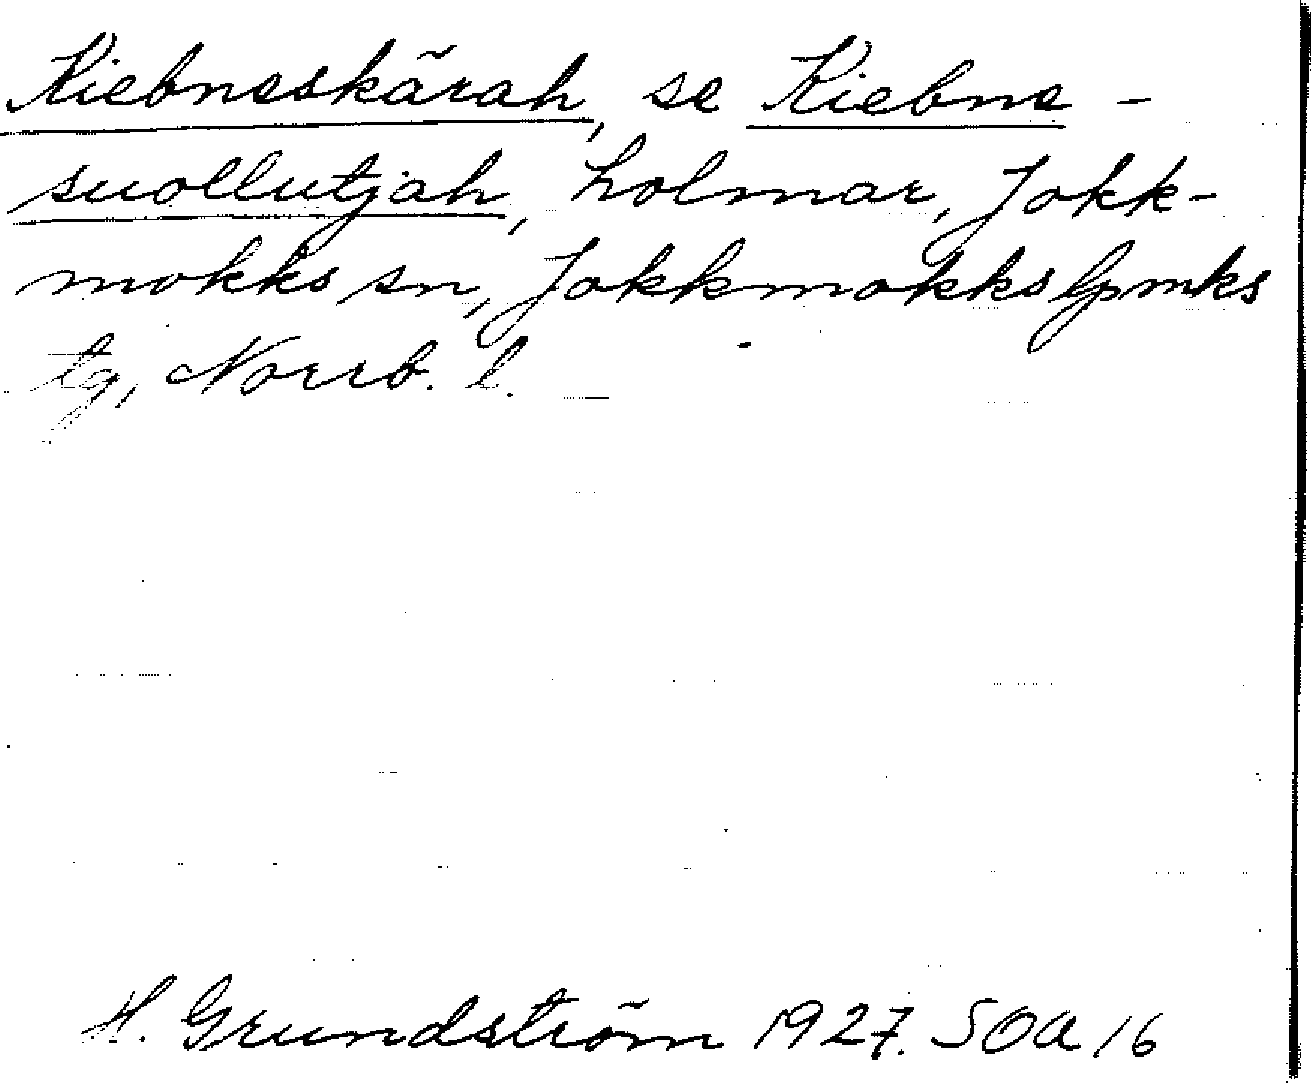 Kiebneskärah, se Kiebne-
suollutjah, holmar, Jokk-
mokks sn, Jokkmokks lpmks
tg, Norrb. l.
H. Grundström 1927. SOA 16